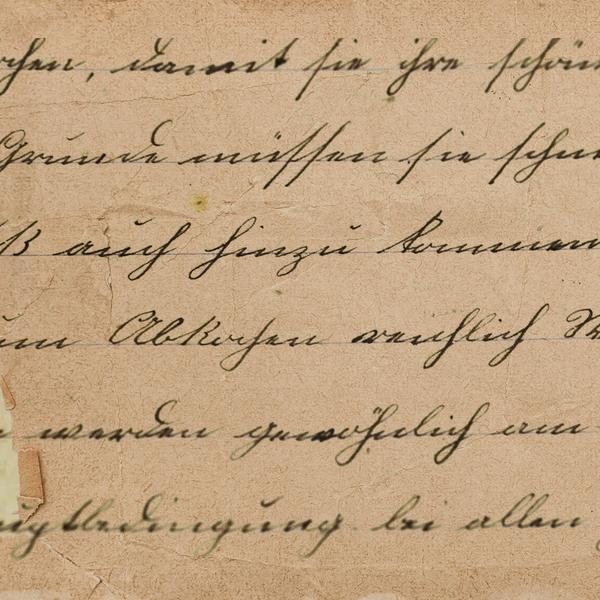 chen, damit sie ihre schön
Grunde müssen sie schne
ß auch hinzu kommen
um Abkochen reichlich
werden gewöhnlich am
uptbedingung bei allen